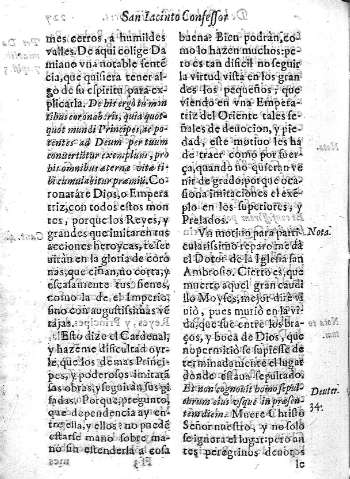 San Iacinto Confessor
mes cerros, a humildes
valles. De aqui colige Da
miano vna notable senten
cia, que quisiera tener al
go de su espiritu para ex-
plicarla. De his ergo tu mon
tibus coronaberis, quia quot
quot mundi Principes, ac po
tentes ad Deum per tuum
conuertūtur exemplum, pro
his omnibus æterna vitæ ti
bi cumulabitur præmiū. Co
ronarâte Dios, o Empera
triz, con todos estos mon
tes, porque los Reyes, y
grandes que imitaren tus
acciones heroycas, te ser
uirān en la gloria de coro
nas, que ciñan, no corta, y
escasamente tus sienes,
como la de el Imperio,
sino con augustissimas vē
tajas.
Esto dize el Cardenal,
y hazeme dificultad oyr-
le, que los demas Princi-
pes, y poderosos imitarā
sas obras, y seguirān sus pi
sadas. Porque, pregunto,
que dependencia ay en-
tre ella, y ellos? no puede
estarse mano sobre ma-
no sin estenderla a cosa
buena? Bien podrān, co-
mo lo hazen muchos: pe-
ro es tan dificil no seguir
la virtud vista en los gran
des los pequeños, que
viendo en vna Empera-
triz del Oriente tales se-
ñales de deuocion, y pie-
dad, este motiuo les ha
de traer como por fuer-
ça, quando no quieran ve
nir de grado; porque oca
siona imitaciones el exē-
plo en los superiores, y
Prelados.
Vn motiuo para parti-
cularissimo reparo me dà
el Dotor de la Iglesia san
Ambrosio. Cierto es, que
muerto aquel gran caudi
llo Moyses, mejor dirè vi
uio, pues murió en la vi-
da, que fue entre los bra-
ços, y boca de Dios, que
no permitio se supiesse de
terminadamente el lugar
donde estaua sepultado.
Et non cognouit homo sepul
chrum eius vsque in præsen-
tem diem. Muere Christo
Señor nuestro, y no solo
se ignora el lugar: pero an
tes peregrinos deuotos
le
Nota.
Deuter.
34.